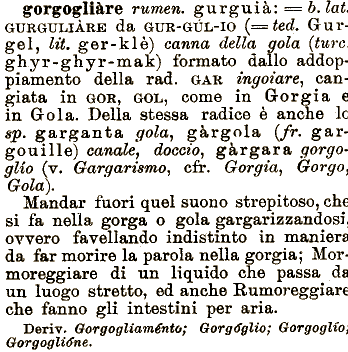 gorgogliàre rumen. gurguià: = b. lat.
GURGULIÀRE da GUR-GÚL-IO (= ted. Gur-
gel, lit. ger-klè) canna della gola (turc.
ghyr-ghyr-mak) formato dallo addop-
piamento della rad. GAR ingoiare, can-
giata in GOR, GOL, come in Gorgia e
in Gola. Della stessa radice è anche lo
sp. garganta gola, gàrgola (fr. gar-
gouille) canale, doccio, gàrgara gorgo-
glio (v. Gargarismo, cfr. Gorgia, Gorgo,
Gola).
Mandar fuori quel suono strepitoso, che
si fa nella gorga o gola gargarizzandosi,
ovvero favellando indistinto in maniera
da far morire la parola nella gorgia; Mor-
moreggiare di un liquido che passa da
un luogo stretto, ed anche Rumoreggiare
che fanno gli intestini per aria.
Deriv. Gorgogliaménto; Gorgóglio; Gorgoglío;
Gorgoglióne.